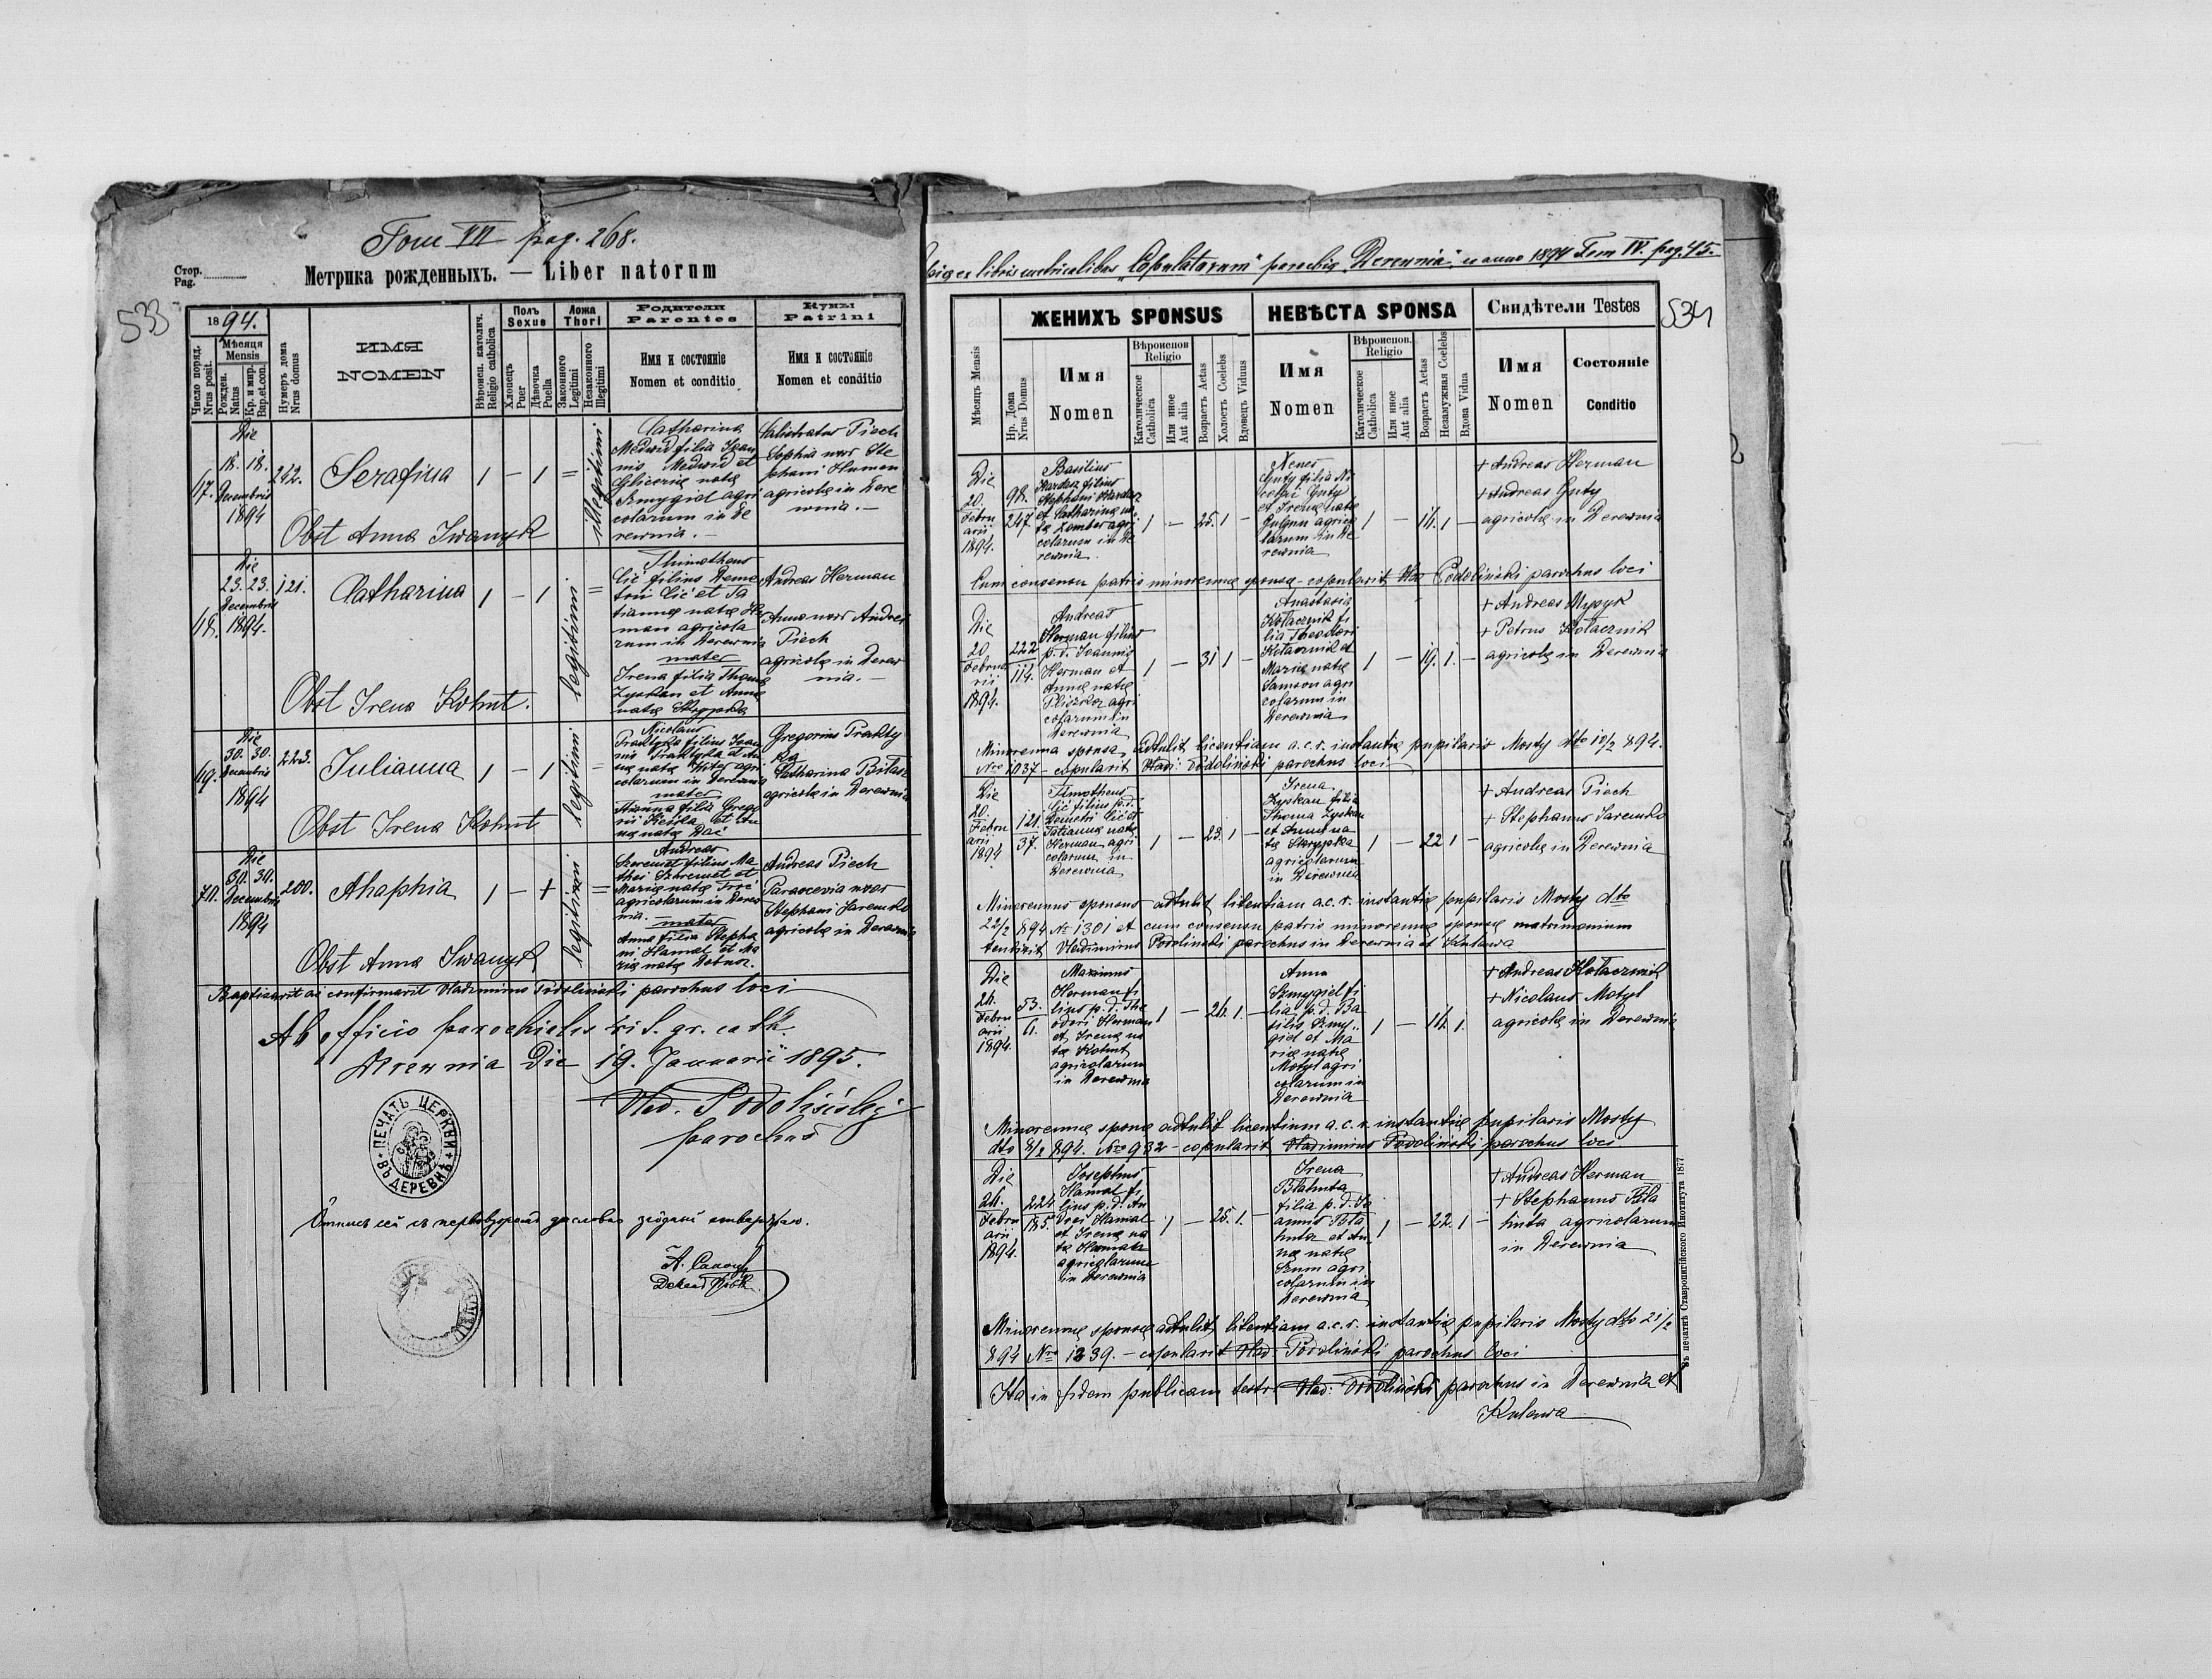 Tom VII pag. 268.
Стор. Pag.
Метрика рожденныхъ. — Liber natorum
533
1894.
Число поряд. Nrus posit.
Мѣсяця Mensis
Рожден. Natus
Кр. и мир. Bap. et con.
Нумеръ дома Nrus domus
ИМЯ NOMEN
Вѣроисп. католич. Religio catholica
Полъ Sexus
Хлопецъ Puer
Дѣвочка Puella
Ложа Thori
Законного Legitimi
Незаконного Illegitimi
Родители Parentes
Имя и состоянiе Nomen et conditio
Кумы Patrini
Имя и состоянiе Nomen et conditio
Die
18. 18.
Decembris
1894
242.
Serafina
1 — 1 =
illegitimi
Catharina
Medwid filia Joan
nis Medwid et
Glicerie natæ
Szmygiel agri
colarum in De
rewnia. —
Calistratus Piech
Sophia uxor Ste
phani Haman
agricolæ in Dere
wnia. —
Obst Anna Iwanyk
Die
23. 23.
Decembris
1894.
121.
Catharina
1 — 1
legitimi
=
Thimotheus
Cić filius Deme
trii Cić et Ta
tiannæ natæ He
rman agricola
rum in Derewnia
mater
Irena filia Thomæ
Zyskan et Annæ
natæ Skrypka
Andreas Herman
Anna uxor Andreæ
Piech
agricolæ in Derew
nia. —
Obst Irena Kohut.
69.
Die
30. 30.
Decembris
1894
223.
Julianna
1 — 1
legitimi
=
Nicolaus
Praktyka filius Joan
nis Praktyka et An
næ natæ
agri
colarum in Derewnia
mater
Gregorius Prakty
ka
Catharina
agricolæ in Derewnia
Obst Irena Kohut
70.
Die
30. 30.
Decembris
1894
200.
Ahaphia
1 — 1
legitimi
=
Andreas
filius Ma
thei et
Mariæ natæ
agricolarum in Derew
nia.
mater
Anna filia Stepha
ni Hamal et Ma
riæ natæ
Andreas Piech
Parascevia uxor
Stephani Jaremko
agricolæ in Derewnia
Obst Anna Iwanyk
Baptizavit ac confirmavit Vladimirus Podolinski parochus loci
Ab officio parochialis rit. gr. cath.
Derewnia Die 19. Januarii 1895.
Vlad. Podolinski
parochus
ПЕЧАТЬ ЦЕРКВИ ВЪ ДЕРЕВНѢ
ex libris metricalibus "Copulatorum" parochiæ "Derewnia" ex anno 1894 Tom IV. pag. 45.
534
Мѣсяцъ Mensis
Нр. Дома Nrus Domus
ЖЕНИХЪ SPONSUS
Имя Nomen
Вѣроиспов. Religio
Католическое Catholica
Или иное Aut alia
Возрастъ Aetas
Холостъ Coelebs
Вдовецъ Viduus
НЕВѢСТА SPONSA
Имя Nomen
Вѣроиспов. Religio
Католическое Catholica
Или иное Aut alia
Возрастъ Aetas
Незамужная Coelebs
Вдова Vidua
Свидѣтели Testes
Имя Nomen
Состоянiе Conditio
Die
20.
Febru
arii
1894.
98.
247.
Basilius
filius
Stephani
et Catharinæ na
tæ agri
colarum in De
rewnia.
1 — 25. 1 —
Guty filia Ni
colai Guty
et Irenæ natæ
agrico
larum in De
rewnia
1 — 1 —
+ Andreas Herman
+ Andreas Guty
agricolæ in Derewnia
Cum consensu patris minorennæ sponsæ - copulavit Vlad Podoliński parochus loci
Die
20.
Februa
rii
1894.
222
114.
Andreas
Herman filius
p. d. Joannis
Herman et
Annæ natæ
agri
colarum in
Derewnia
1 — 31 1 —
Anastasia
Kołacznik fi
lia Theodori
Kołacznik et
Mariæ natæ
Samson agri
colarum in
Derewnia
1 — 19. 1. —
+ Andreas
+ Petrus Kołacznik
agricolæ in Derewnia
Minorenna sponsa adtulit licentiam a.c.r. instantiæ pupilaris Mosty dto 10/2 894.
Nro 1037 - copulavit Vladi: Podoliński parochus loci
Die
20.
Febru
arii
1894
121
37.
Timotheus
Cić filius p. d.
Demetri Cić et
Tatiannæ natæ
Herman agri
colarum in
Derewnia
1 — 23. 1 —
Irena
Zyskan filia
Thoma Zyskan
et Annæ na
tæ Skrypka
agricolarum
in Derewnia
1 — 22 1 —
+ Andreas Piech
+ Stephanus Jaremko
agricolæ in Derewnia
Minorennus sponsus adtulit licentiam a.c.r. instantiæ pupilaris Mosty dto
22/2 894 Nr 1301 et cum consensu patris minorennæ sponsæ matrimonium
Vladimirus Podoliński parochus in Derewnia et Kulawa
Die
26.
Febru
arii
1894.
53.
6.
Maximus
Herman fi
lius p. d. The
odori Herman
et Irenæ na
tæ Kohut
agricolarum
in Derewnia
1 — 26. 1. —
Anna
Szmygiel fi
lia p. d. Ba
silii Szmy
giel et Ma
riæ natæ
Motyl agri
colarum in
Derewnia
1 — 1.
+ Andreas Kołacznik
+ Nicolaus Motyl
agricolæ in Derewnia
Minorennæ sponsa adtulit licentiam a.c.r. instantiæ pupilaris Mosty
dto 8/2 894. Nro 932 - copulavit Vladimirus Podoliński parochus loci
Die
26.
Febru
arii
1894.
224
185.
Josephus
Hamal fi
lius p. d. An
dreæ Hamal
et Irenæ na
tæ
agricolarum
in Derewnia
1 — 25. 1. —
Irena
filia p. d. Jo
annis
et An
næ natæ
agri
colarum in
Derewnia
1 — 22. 1 —
+ Andreas Herman
+ Stephanus
agricolarum
in Derewnia
Minorennæ sponsæ adtulit licentiam a.c.r. instantiæ pupilaris Mosty dto 21/2
894 Nro 1239. - copulavit Vlad Podoliński parochus loci
Ita in fidem publicam testor Vlad: Podoliński parochus in Derewnia et
Kulawa
Въ печатнѣ Ставропигiйского Института 1877